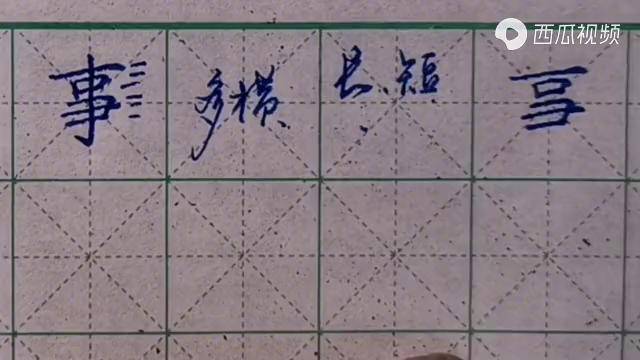 西瓜视频
事 多横 长短